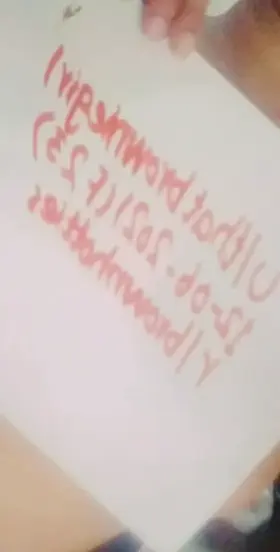 U/thatbrownnegirl
12-06-2021 (F 23)
r/brownhotties